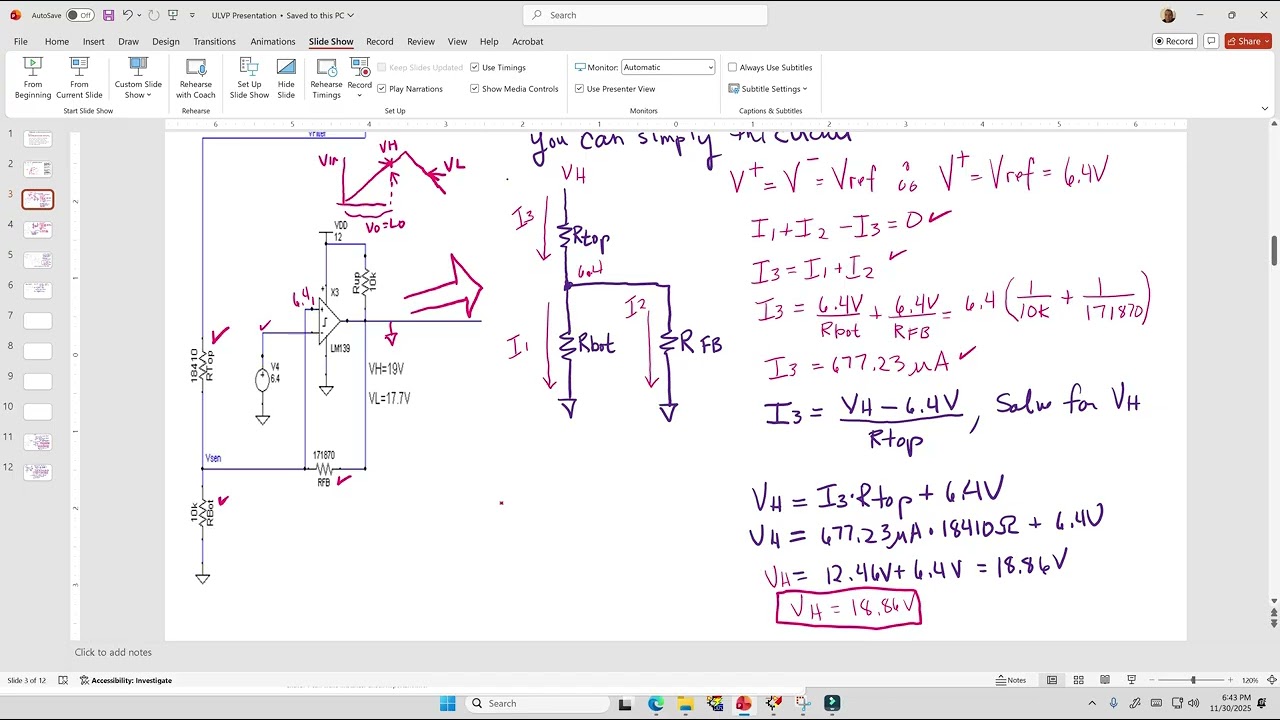 AutoSave Off
ULVP Presentation • Saved to this PC
Search
File Home Insert Draw Design Transitions Animations Slide Show Record Review View Help Acrobat
Record Share
From Beginning
From Current Slide
Custom Slide Show
Rehearse with Coach
Set Up Slide Show
Hide Slide
Rehearse Timings
Record
Keep Slides Updated
Play Narrations
Use Timings
Show Media Controls
Monitor: Automatic
Use Presenter View
Always Use Subtitles
Subtitle Settings
Start Slide Show
Rehearse
Set Up
Monitors
Captions & Subtitles
6 5 4 3 2 1 0 1 2 3 4 5 6
1
2
3
4
5
6
7
8
9
10
11
12
2
1
0
1
2
3
You can simply the circuit
VH
Vin
VL
Vo=Lo
VDD
12
Rup
10k
6.4
X3
LM139
V4
6.4
18410
RTop
VH=19V
VL=17.7V
Vsen
171870
RFB
10k
RBot
VH
I3
Rtop
6.4
I1
Rbot
I2
RFB
V+ = V- = Vref ∴ V+ = Vref = 6.4V
I1+I2 -I3=0
I3=I1+I2
I3 = 6.4V/Rbot + 6.4V/RFB = 6.4 (1/10K + 1/171870)
I3 = 677.23μA
I3 = VH-6.4V/Rtop, Solve for VH
VH = I3·Rtop + 6.4V
VH = 677.23μA·18410Ω + 6.4V
VH = 12.46V+6.4V = 18.86V
VH = 18.86V
Click to add notes
Slide 3 of 12
Accessibility: Investigate
Notes
120%
Search
6:43 PM
11/30/2025